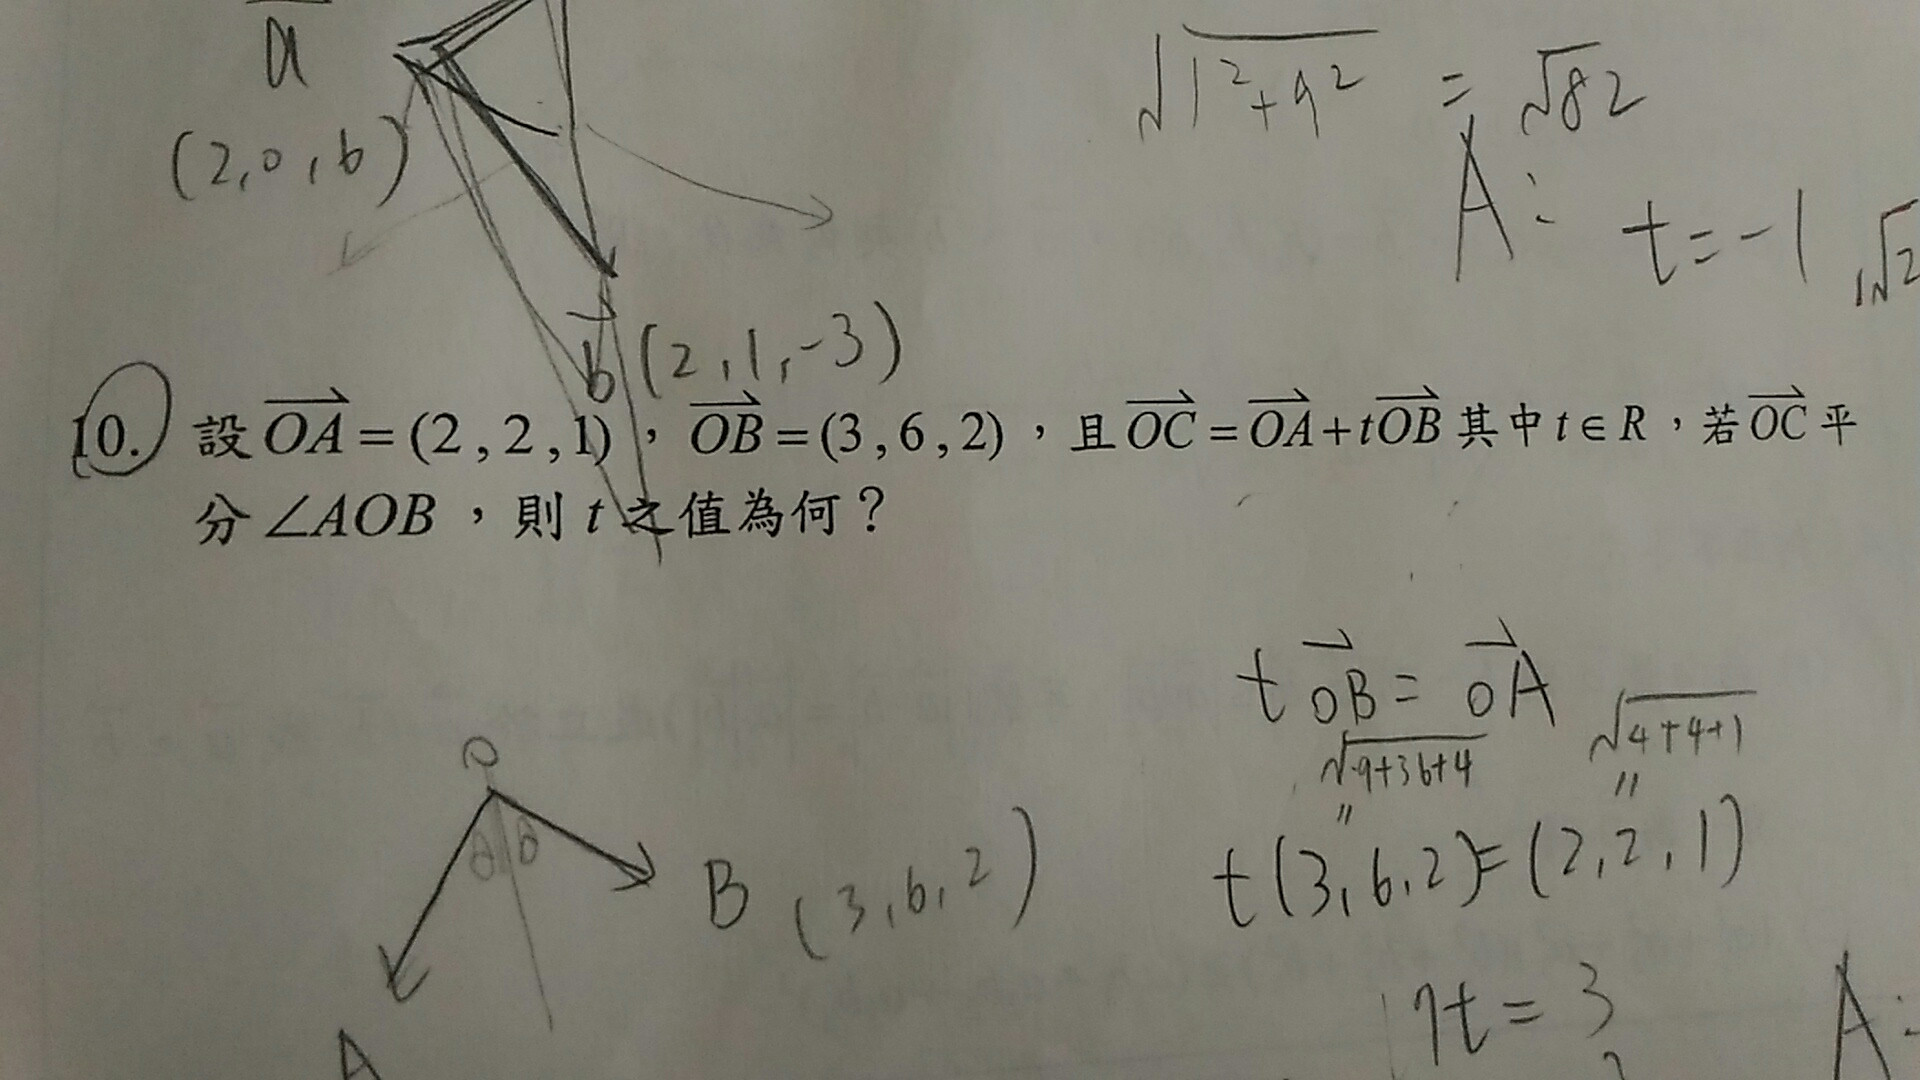 a
(2,0,6)
√1²+9² = √82
A: t=-1 ,√2
b (2,1,-3)
10. 設 OA = (2,2,1),OB = (3,6,2),且 OC = OA + tOB 其中 t ∈ R,若 OC 平
分 ∠AOB,則 t 之值為何?
t OB = OA
√9+36+4 √4+4+1
" "
t(3,6,2) = (2,2,1)
7t = 3
O
θ θ
B (3,6,2)
A
A: